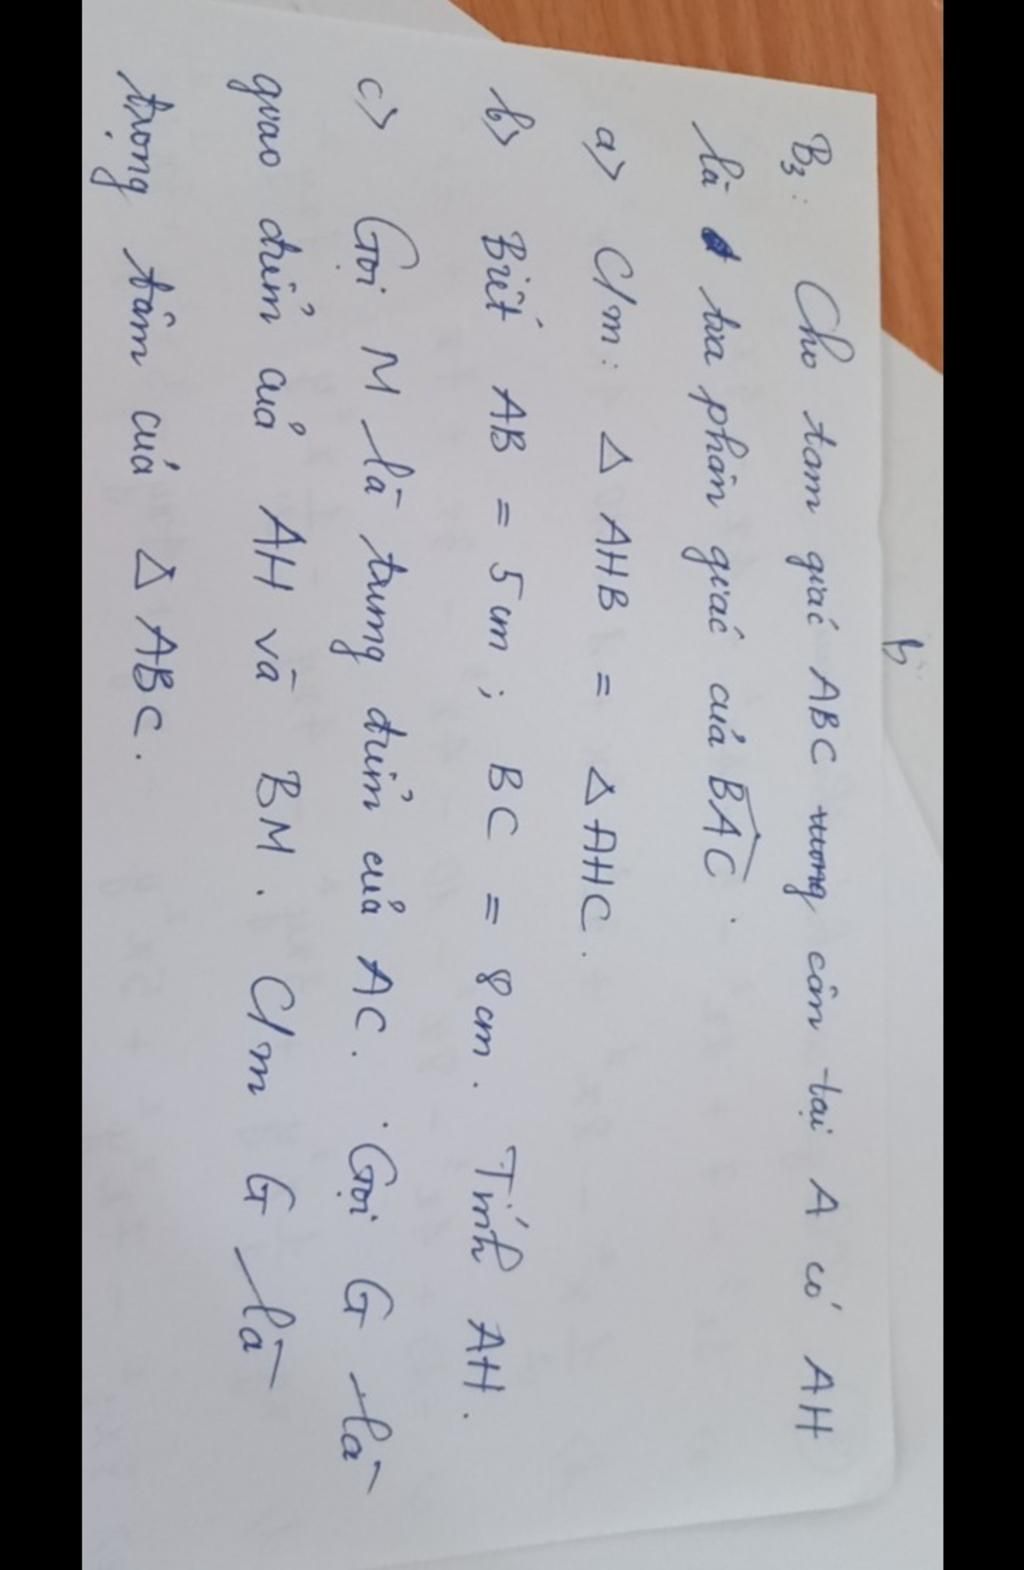 B3: Cho tam giác ABC vuong cân tại A có AH
là tia phân giác của BAC.
a> C/m: Δ AHB = Δ AHC.
b> Biết AB = 5cm; BC = 8cm. Tính AH.
c> Gọi M là trung điểm của AC. Gọi G là
giao điểm của AH và BM. C/m G là
trọng tâm của Δ ABC.